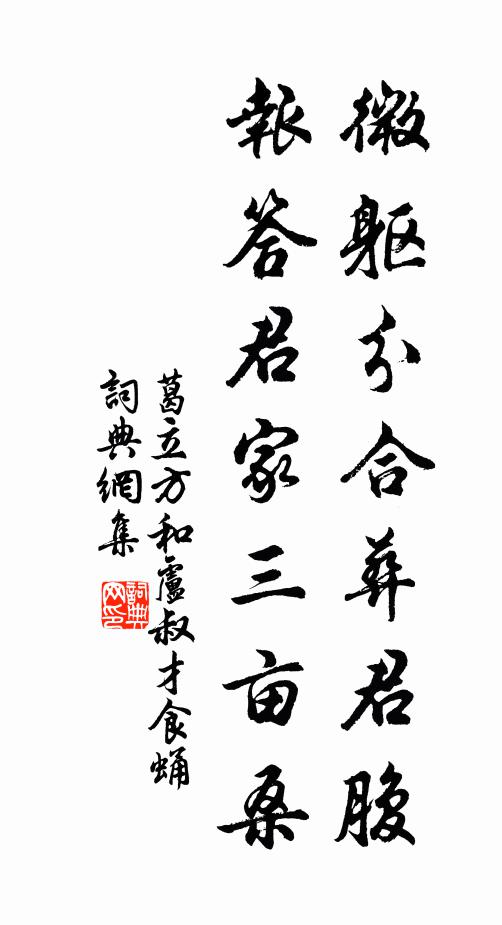 微躯分合葬君腹
報答君家三亩桑
葛立方和盧叔才食蛹
詞典網集
詞典网印